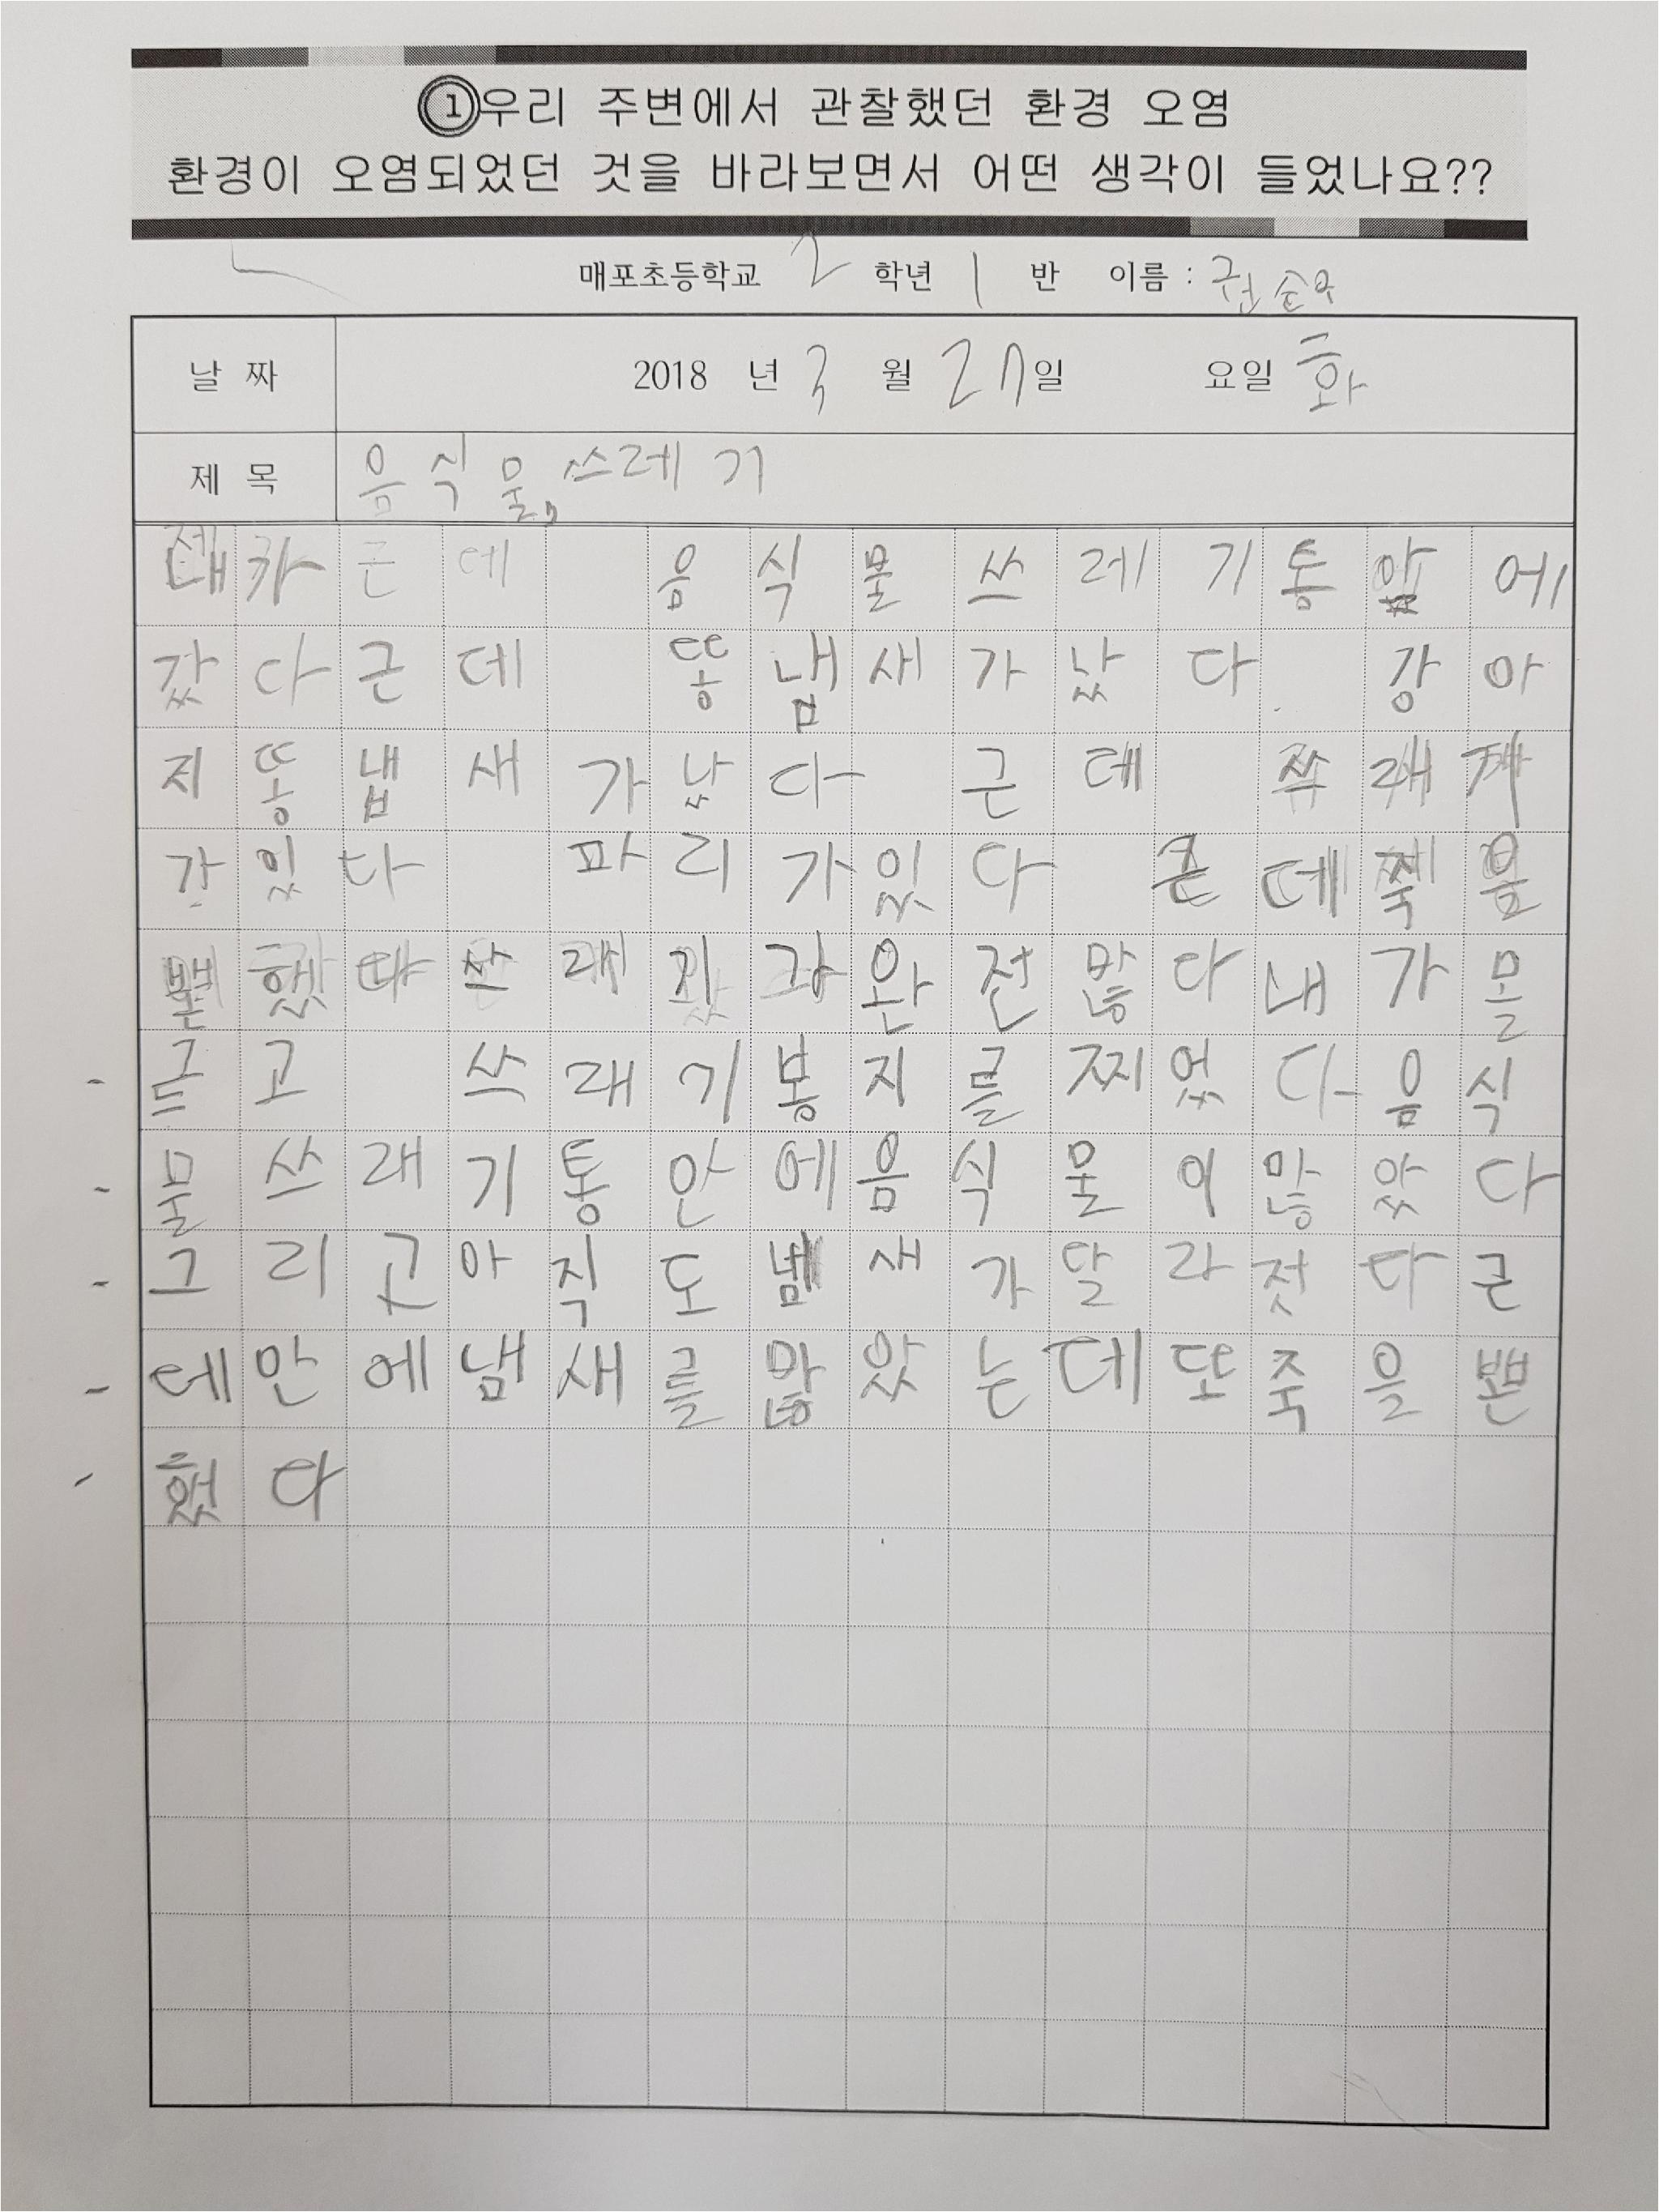 ①우리 주변에서 관찰했던 환경 오염
환경이 오염되었던 것을 바라보면서 어떤 생각이 들었나요??
매포초등학교 2 학년 1 반 이름 :
날 짜 2018 년 3 월 27일 요일 화
제 목 음식물쓰레기
근데 음식물쓰레기통앞에
갔다근데 똥냄새가났다 강아
지똥냅새가났다 근데
가있다 파리가있다 근데죽을
했다쓰래기가완전많다내가모
르고 쓰래기봉지를찌었다음식
물쓰래기통안에음식물이많았다
그리고아직도냄새가달라젓다근
데안에냄새를맣았는데또죽을뽄
했다